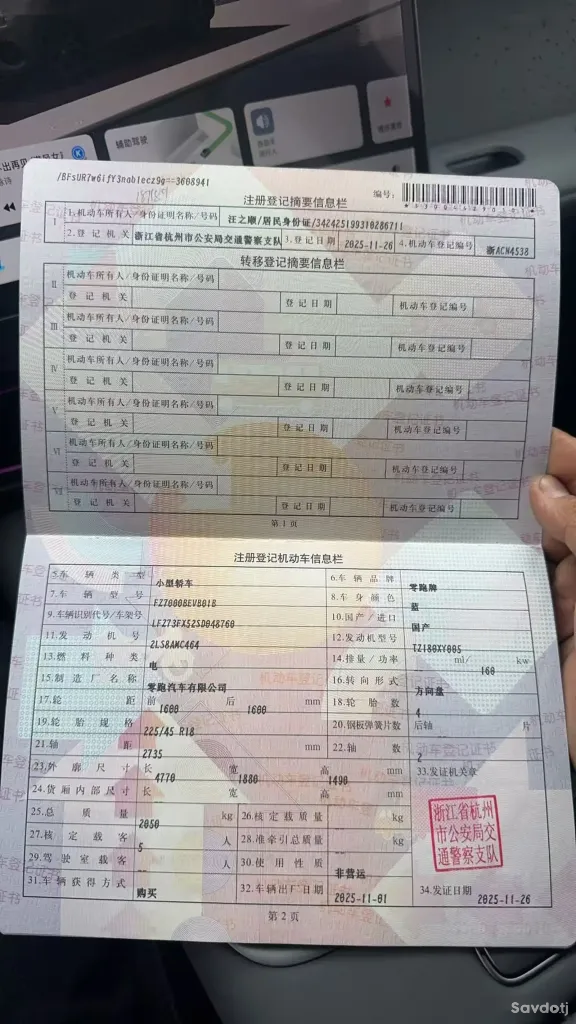 辅助驾驶
/BFsUR7w6ifY3nab1ecz9g==3608941
编号:
注册登记摘要信息栏
I
1.机动车所有人/身份证明名称/号码 汪之顺/居民身份证/342425199310286711
2.登记机关 浙江省杭州市公安局交通警察支队 3.登记日期 2025-11-26 4.机动车登记编号 浙ACN4538
转移登记摘要信息栏
II
机动车所有人/身份证明名称/号码
登记机关 登记日期 机动车登记编号
III
机动车所有人/身份证明名称/号码
登记机关 登记日期 机动车登记编号
IV
机动车所有人/身份证明名称/号码
登记机关 登记日期 机动车登记编号
V
机动车所有人/身份证明名称/号码
登记机关 登记日期 机动车登记编号
VI
机动车所有人/身份证明名称/号码
登记机关 登记日期 机动车登记编号
VII
机动车所有人/身份证明名称/号码
登记机关 登记日期 机动车登记编号
第1页
注册登记机动车信息栏
5.车辆类型 小型轿车 6.车辆品牌 零跑牌
7.车辆型号 FZ7000BEVB01B 8.车身颜色 蓝
9.车辆识别代号/车架号 LFZ73FX52SD048760 10.国产/进口 国产
11.发动机号 2LS8AMC464 12.发动机型号 TZ180XY005
13.燃料种类 电 14.排量/功率 ml/ 160 kw
15.制造厂名称 零跑汽车有限公司 16.转向形式 方向盘
17.轮距 前 1600 后 1600 mm 18.轮胎数 4
19.轮胎规格 225/45 R18 20.钢板弹簧片数 后轴 片
21.轴距 2735 mm 22.轴数 2
23.外廓尺寸 长 4770 宽 1880 高 1490 mm 33.发证机关章
24.货厢内部尺寸 长 宽 高 mm
25.总质量 2050 kg 26.核定载质量 -- kg
27.核定载客 5 人 28.准牵引总质量 -- kg
29.驾驶室载客 -- 人 30.使用性质 非营运
31.车辆获得方式 购买 32.车辆出厂日期 2025-11-01 34.发证日期 2025-11-26
浙江省杭州
市公安局交
通警察支队
第2页
Savdotj